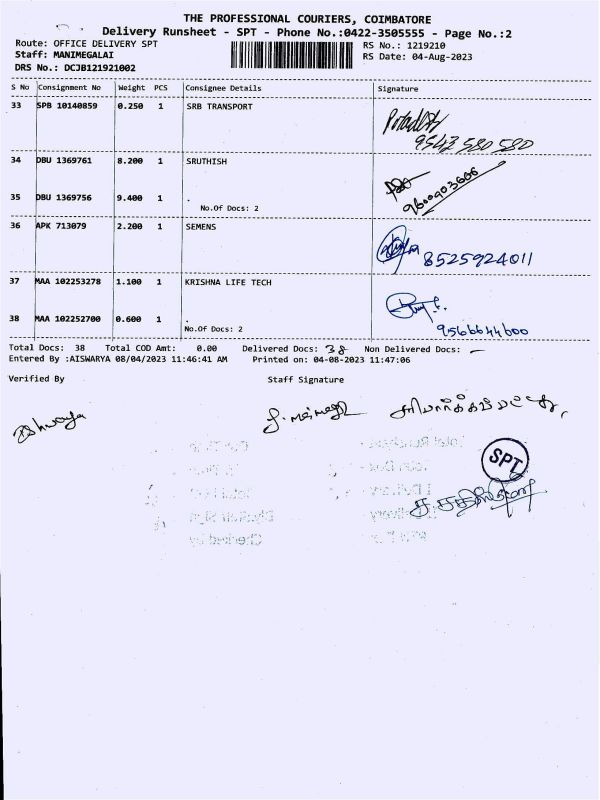 THE PROFESSIONAL COURIERS, COIMBATORE
Delivery Runsheet - SPT - Phone No.:0422-3505555 - Page No.:2
Route: OFFICE DELIVERY SPT RS No.: 1219210
Staff: MANIMEGALAI RS Date: 04-Aug-2023
DRS No.: DCJB121921002
S No Consignment No Weight PCS Consignee Details Signature
33 SPB 10140859 0.250 1 SRB TRANSPORT
9543 580 580
34 DBU 1369761 8.200 1 SRUTHISH
9600903666
35 DBU 1369756 9.400 1 .
No.Of Docs: 2
36 APK 713079 2.200 1 SEMENS
8525924011
37 MAA 102253278 1.100 1 KRISHNA LIFE TECH
38 MAA 102252700 0.600 1 .
No.Of Docs: 2 9566644600
Total Docs: 38 Total COD Amt: 0.00 Delivered Docs: 38 Non Delivered Docs: -
Entered By :AISWARYA 08/04/2023 11:46:41 AM Printed on: 04-08-2023 11:47:06
Verified By Staff Signature
SPT